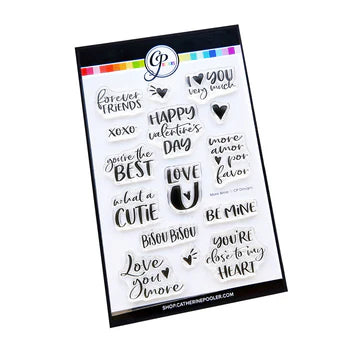 CP
forever
FRIENDS
I YOU
very much
XOXO
HAPPY
valentine's
DAY
you're the
BEST
LOVE
U
more
amor
por
favor
what a
CUTIE
More Amor | CP Designs
BE MINE
BISOU BISOU
Love
you
more
YOU'RE
close to my
HEART
SHOP.CATHERINEPOOLER.COM